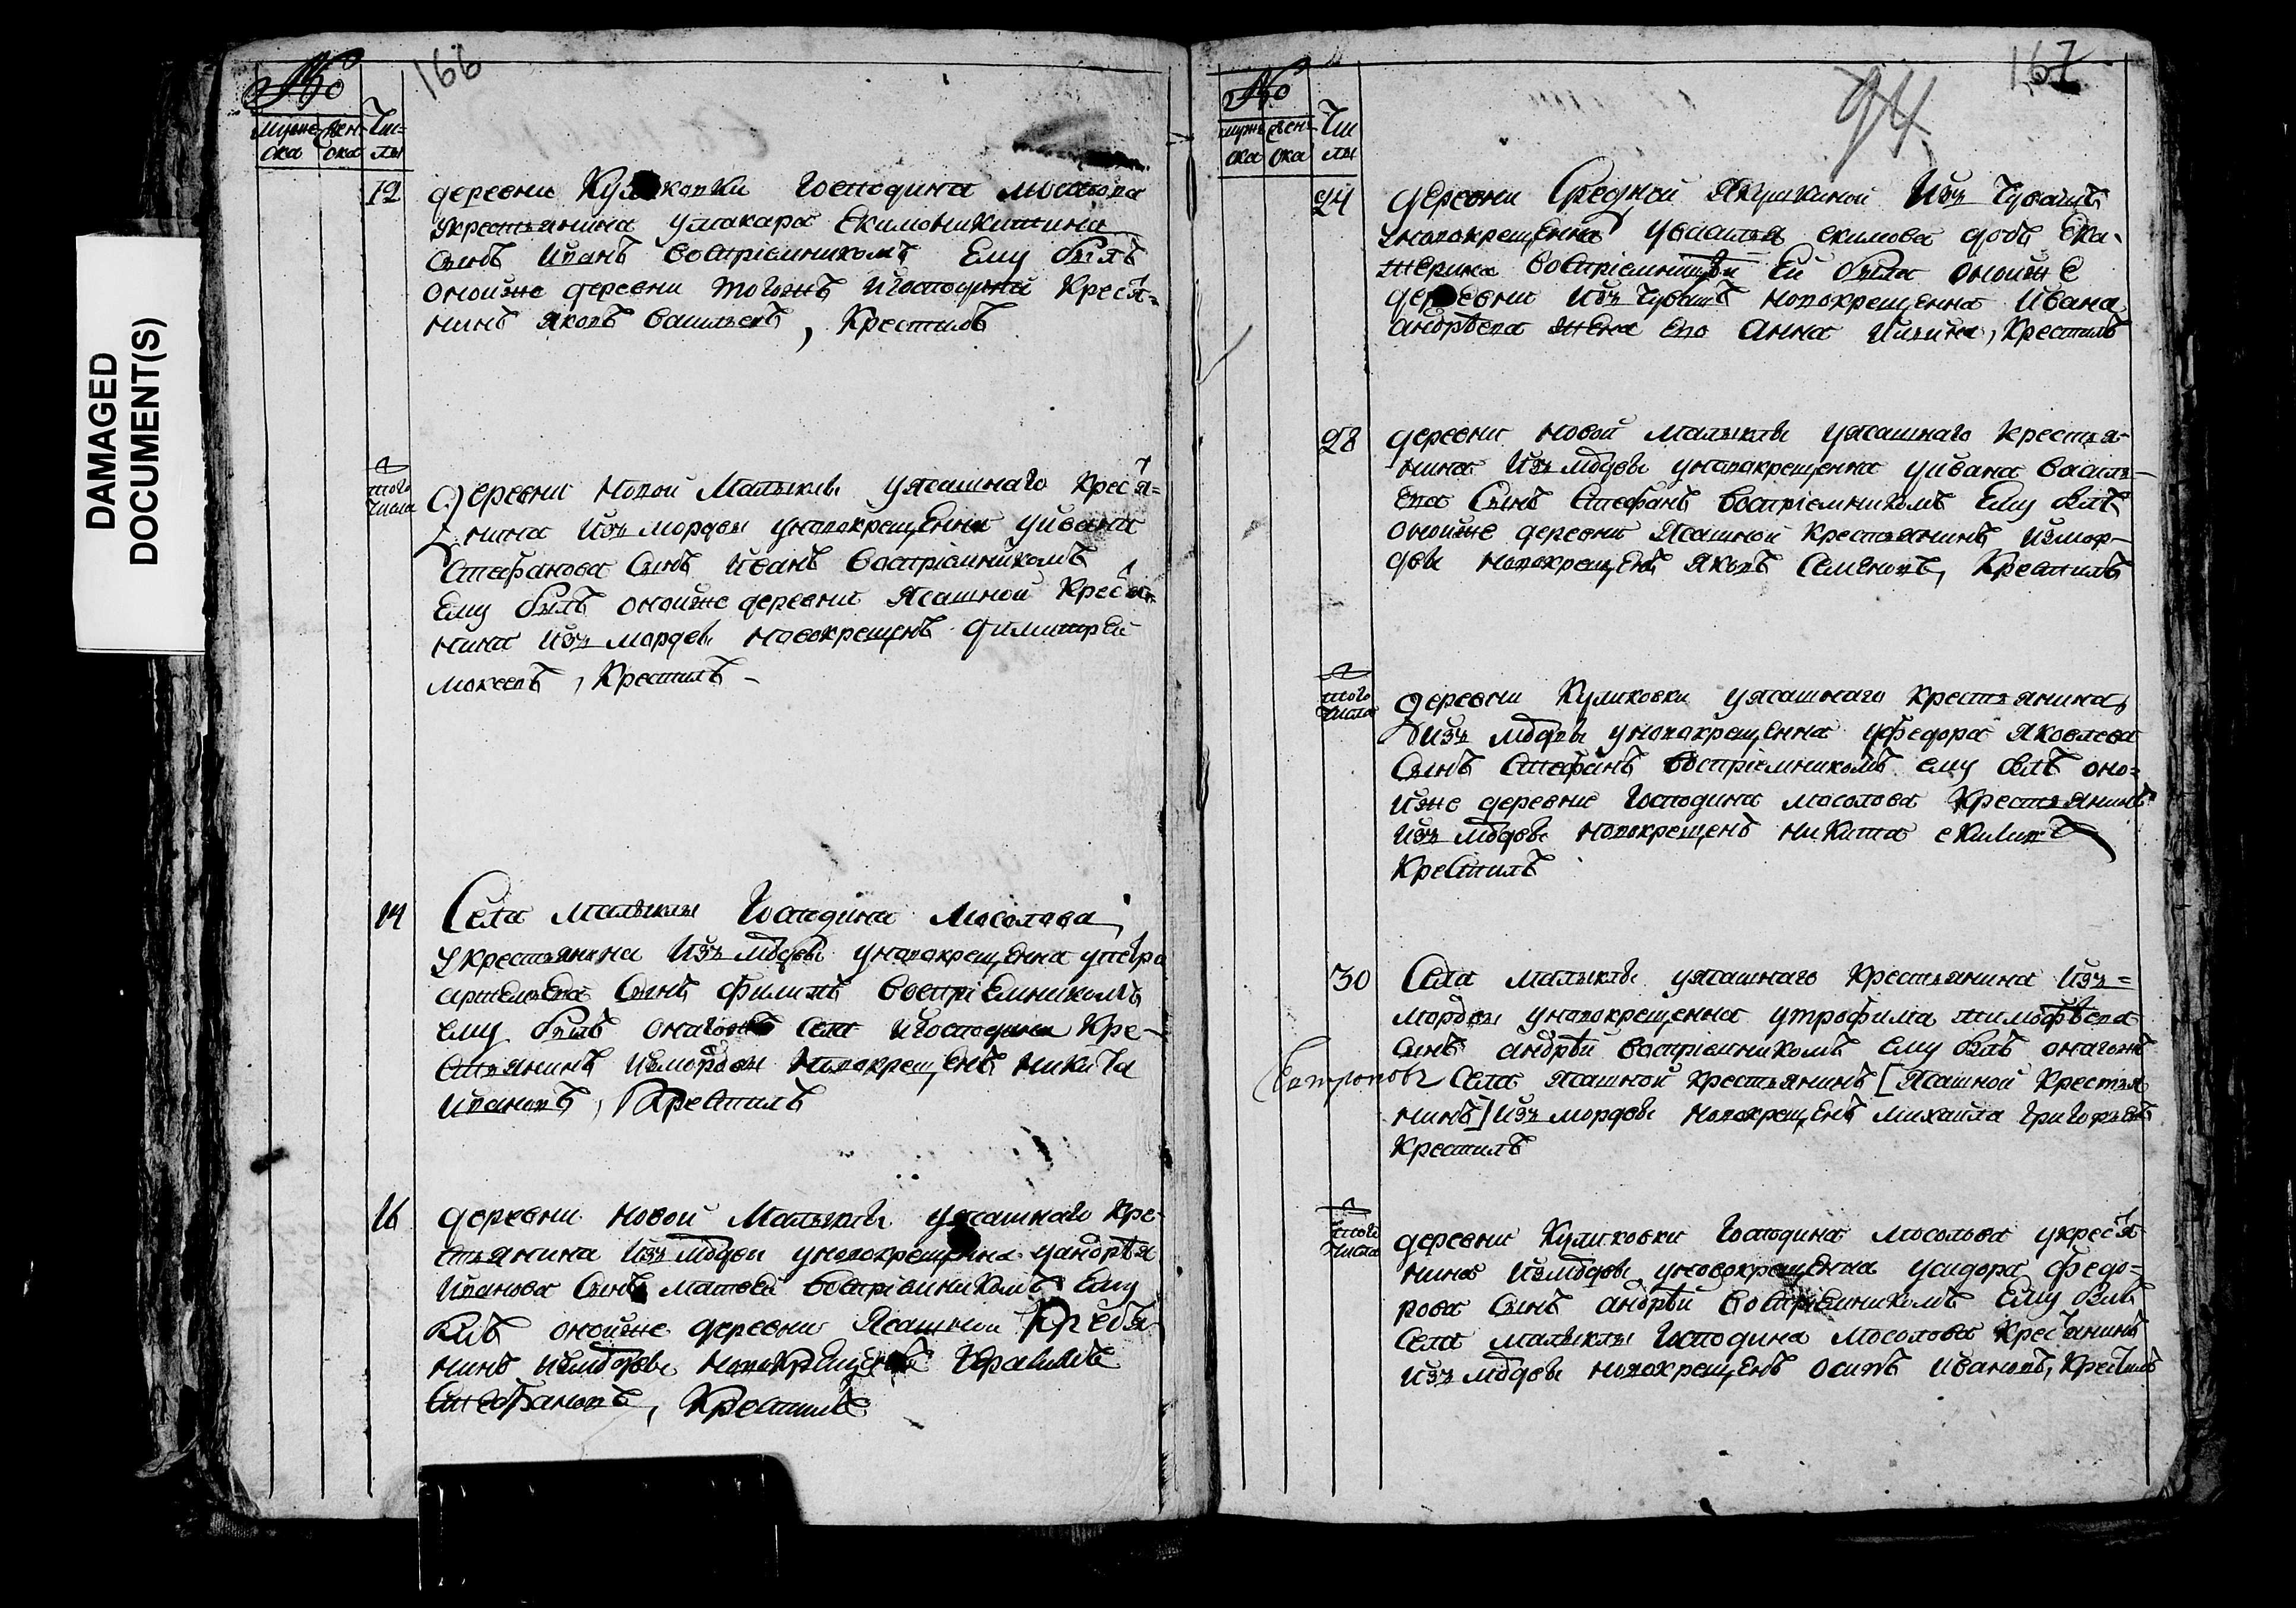 DAMAGED
DOCUMENT(S)
166
№
мужеска женска Числы
12 деревни Куликовки Господина Мосолова
укрестьянина умакара Екимова
Сынъ Иванъ воспрiемникомъ Ему былъ
онойже деревни тогожъ Игосподина Кресья=
нинъ Яковъ Васильевъ, Крестилъ
того числа
деревни Новой Малыклы уясашнаго кресья=
нина Изъ мордвы уновокрещенна уивана
Стефанова Сынъ Иванъ воспрiемникомъ
Ему былъ онойже деревни Ясашной Кресья=
нина изъ мордвы новокрещенъ димитрей
Мокеевъ, Крестилъ
14 Села Малыклы Господина Мосолова
укрестьянина Изъ мордвы уновокрещенна упетра
Сынъ филипъ воспрiемникомъ
ему былъ онагожъ села Игосподина Кре-
стьянинъ Измордвы Новокрещенъ Никита
Ивановъ, Крестилъ
16 деревни Новой Малыклы уясашнаго Кре-
стьянина Изъ мордвы уновокрещенна уандрѣя
Иванова Сынъ матвей воспрiемникомъ Ему
былъ онойже деревни Ясашной Кресья-
нинъ Измордвы Новокрещенъ Герасимъ
Стефановъ, Крестилъ
167
94
№
мужеска женска Числы
24 деревни Средной Якушкиной Изъ Чувашъ
уновокрещенна увасилья екимова дочь Ека-
терина воспрiемницей Ей была онойже
деревни Изъ Чувашъ новокрещенна Ивана
андрѣева жена Его Анна Ильина, Крестилъ
28 деревни Новой Малыклы уясашнаго Крестья-
нина Изъ мордвы уновокрещенна уивана василь-
ева Сынъ Стефанъ воспрiемникомъ Ему былъ
онойже деревни Ясашной Крестьянинъ Измор-
двы новокрещенъ Яковъ Семеновъ, Крестилъ
того числа
деревни Куликовки уясашнаго Крестьянина
Изъ мордвы уновокрещенна уфедора Яковлева
Сынъ Стефанъ воспрiемникомъ ему былъ оно=
йже деревни Господина Мосолова Крестьянинъ
Изъ мордвы новокрещенъ никита екимовъ
Крестилъ
30 Села Малыклы уясашнаго Крестьянина Изъ=
мордвы уновокрещенна утрофима тимофѣева
сынъ андрѣй воспрiемникомъ ему былъ онагожъ
Села Ясашной крестьянинъ [Ясашной Крестья
нинъ] Изъ мордвы новокрещенъ Михайла григорьевъ
Крестилъ
того числа
деревни Куликовки Господина Мосолова укресья
нина Измордвы уновокрещенна усидора федо=
рова Сынъ андрѣй воспрiемникомъ Ему былъ
Села малыклы Господина Мосолова Кресьянинъ
Изъ мордвы новокрещенъ осипъ Ивановъ, Крестилъ